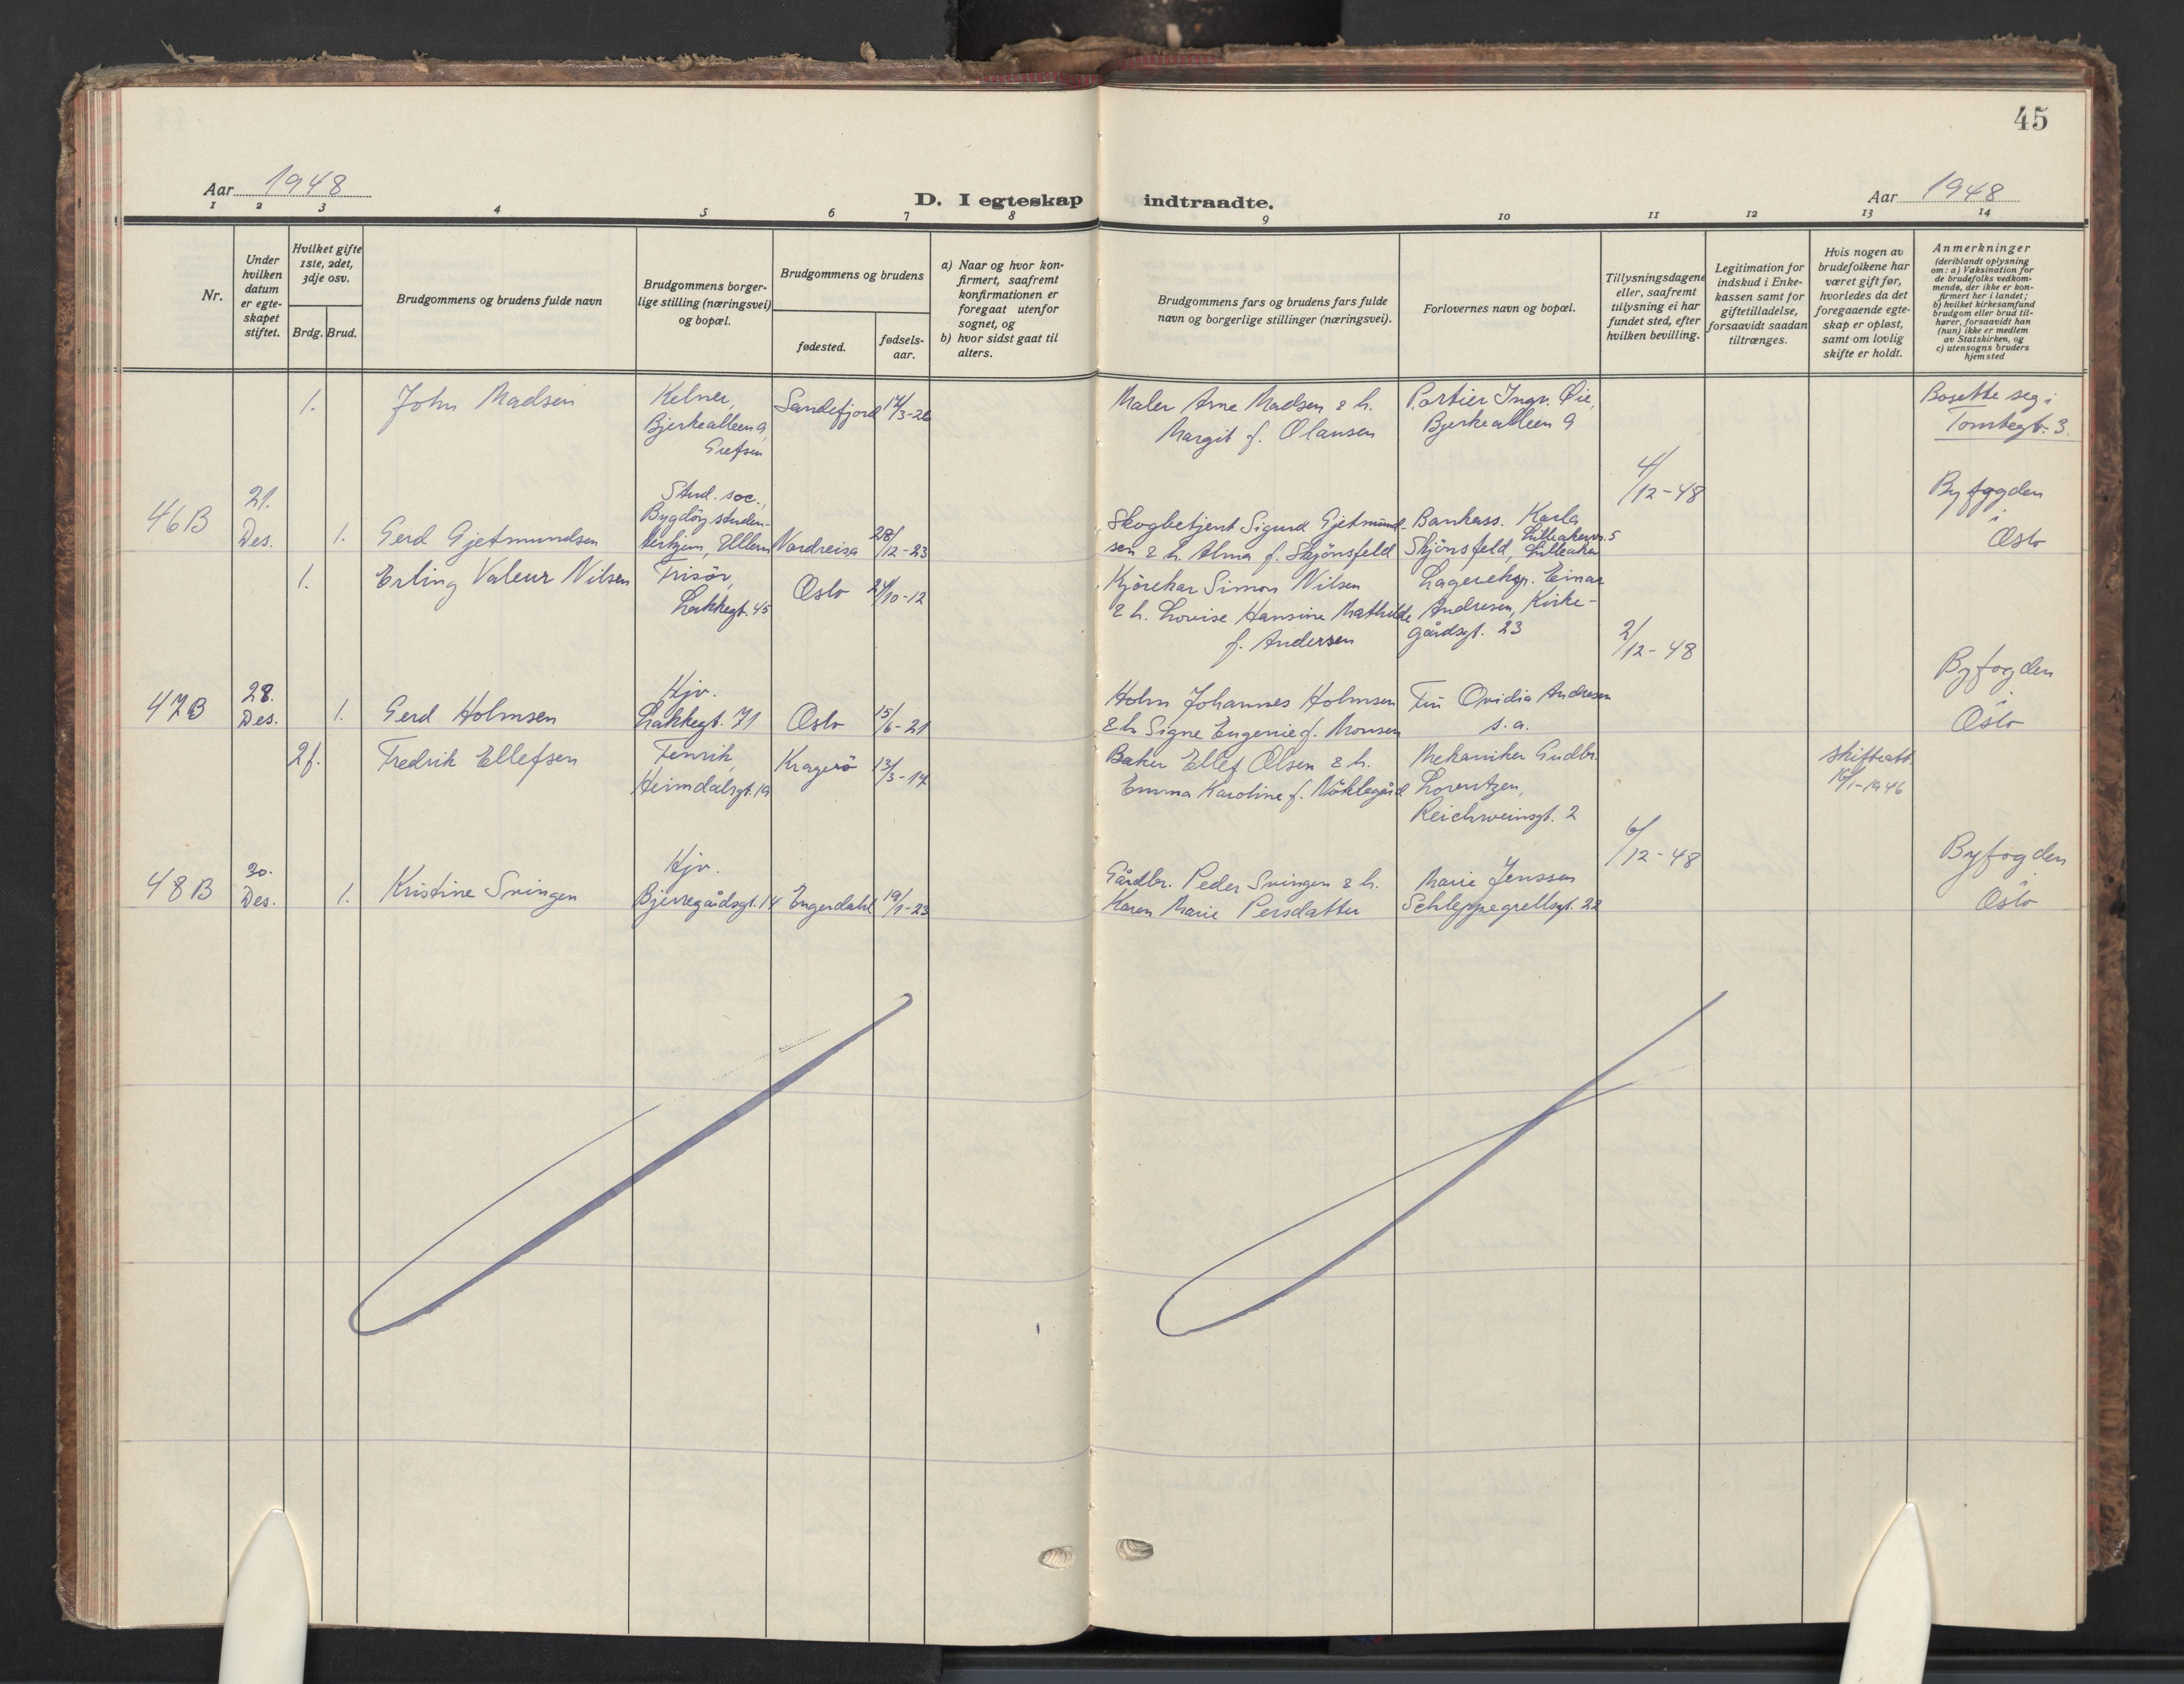 45
Aar 1948
D. I egteskap indtraadte.
Aar 1948
1 2 3 4 5 6 7 8 9 10 11 12 13 14
Nr.
Under
hvilken
datum
er egte-
skapet
stiftet.
Hvilket gifte
1ste, 2det,
3dje osv.
Brdg. Brud.
Brudgommens og brudens fulde navn
Brudgommens borger-
lige stilling (næringsvei)
og bopæl.
Brudgommens og brudens
fødested.
fødsels-
aar.
a) Naar og hvor kon-
firmert, saafremt
konfirmationen er
foregaat utenfor
sognet, og
b) hvor sidst gaat til
alters.
Brudgommens fars og brudens fars fulde
navn og borgerlige stillinger (næringsvei).
Forlovernes navn og bopæl.
Tillysningsdagene
eller, saafremt
tillysning ei har
fundet sted, efter
hvilken bevilling.
Legitimation for
indskud i Enke-
kassen samt for
giftetilladelse,
forsaavidt saadan
tiltrænges.
Hvis nogen av
brudefolkene har
været gift før,
hvorledes da det
foregaaende egte-
skap er opløst,
samt om lovlig
skifte er holdt.
Anmerkninger
(deriblandt oplysning
om: a) Vaksination for
de brudefolks vedkom-
mende, der ikke er kon-
firmert her i landet;
b) hvilket kirkesamfund
brudgom eller brud til-
hører, forsaavidt han
(hun) ikke er medlem
av Statskirken, og
c) utensogns bruders
hjemsted
1.
John Madsen
Kelner,
Bjerkealleen 9,
Grefsen
Sandefjord
14/3-26
Maler Arne Madsen & h.
Margit f. Olausen
Portier Ingv. Øie,
Bjerkealleen 9
Bosette seg i
Tomtegt. 3.
46B
21.
Des.
1.
Gerd Gjetmundsen
Stud. soc.,
Bygdöy studen-
terhjem, Ullern
Nordreisa
28/12-23
Skogbetjent Sigurd Gjetmund-
sen & h. Alma f. Skjönsfeld
Bankass. Karla
Skjönsfeld, Lilleakervn. 5
Lilleaker
4/12-48
Byfogden
i
Oslo
1.
Erling Valeur Nilsen
Frisör,
Lakkegt. 45
Oslo
24/10-12
Kjörekar Simon Nilsen
& h. Lovise Hansine Mathilde
f. Andersen
Lagereksp. Einar
Andresen, Kirke-
gårdsgt. 23
2/12-48
47B
28.
Des.
1.
Gerd Holmsen
Hjv.
Lakkegt. 71
Oslo
15/6-21
Holm Johannes Holmsen
& h. Signe Eugenie f. Monsen
Fru Ovidia Andresen
s. a.
Byfogden
i
Oslo
2f.
Fredrik Ellefsen
Fenrik,
Heimdalsgt. 19
Kragerö
13/3-17
Baker Ellef Olsen & h.
Emma Karoline f. Nöklegård
Mekaniker Gudbr.
Lorentzen,
Reichweinsgt. 2
6/12-48
skifteatt.
16/1-1946
48B
30.
Des.
1.
Kristine Svingen
Hjv.
Bjerregårdsgt. 14
Engerdahl
19/1-23
Gårdbr. Peder Svingen & h.
Karen Marie Persdatter
Marie Jenssen
Schleppegrellsgt. 22
Byfogden
i
Oslo